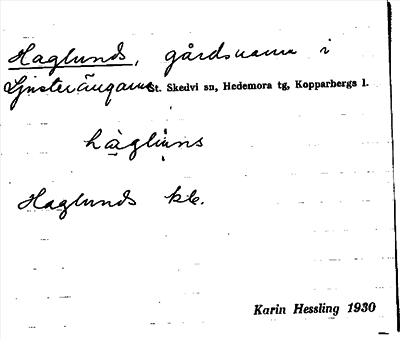 Haglunds, gårdsnamn i
Ljusterängarna St. Skedvi sn, Hedemora tg, Kopparbergs l.
hàglụns
Haglunds kb.
Karin Hessling 1930